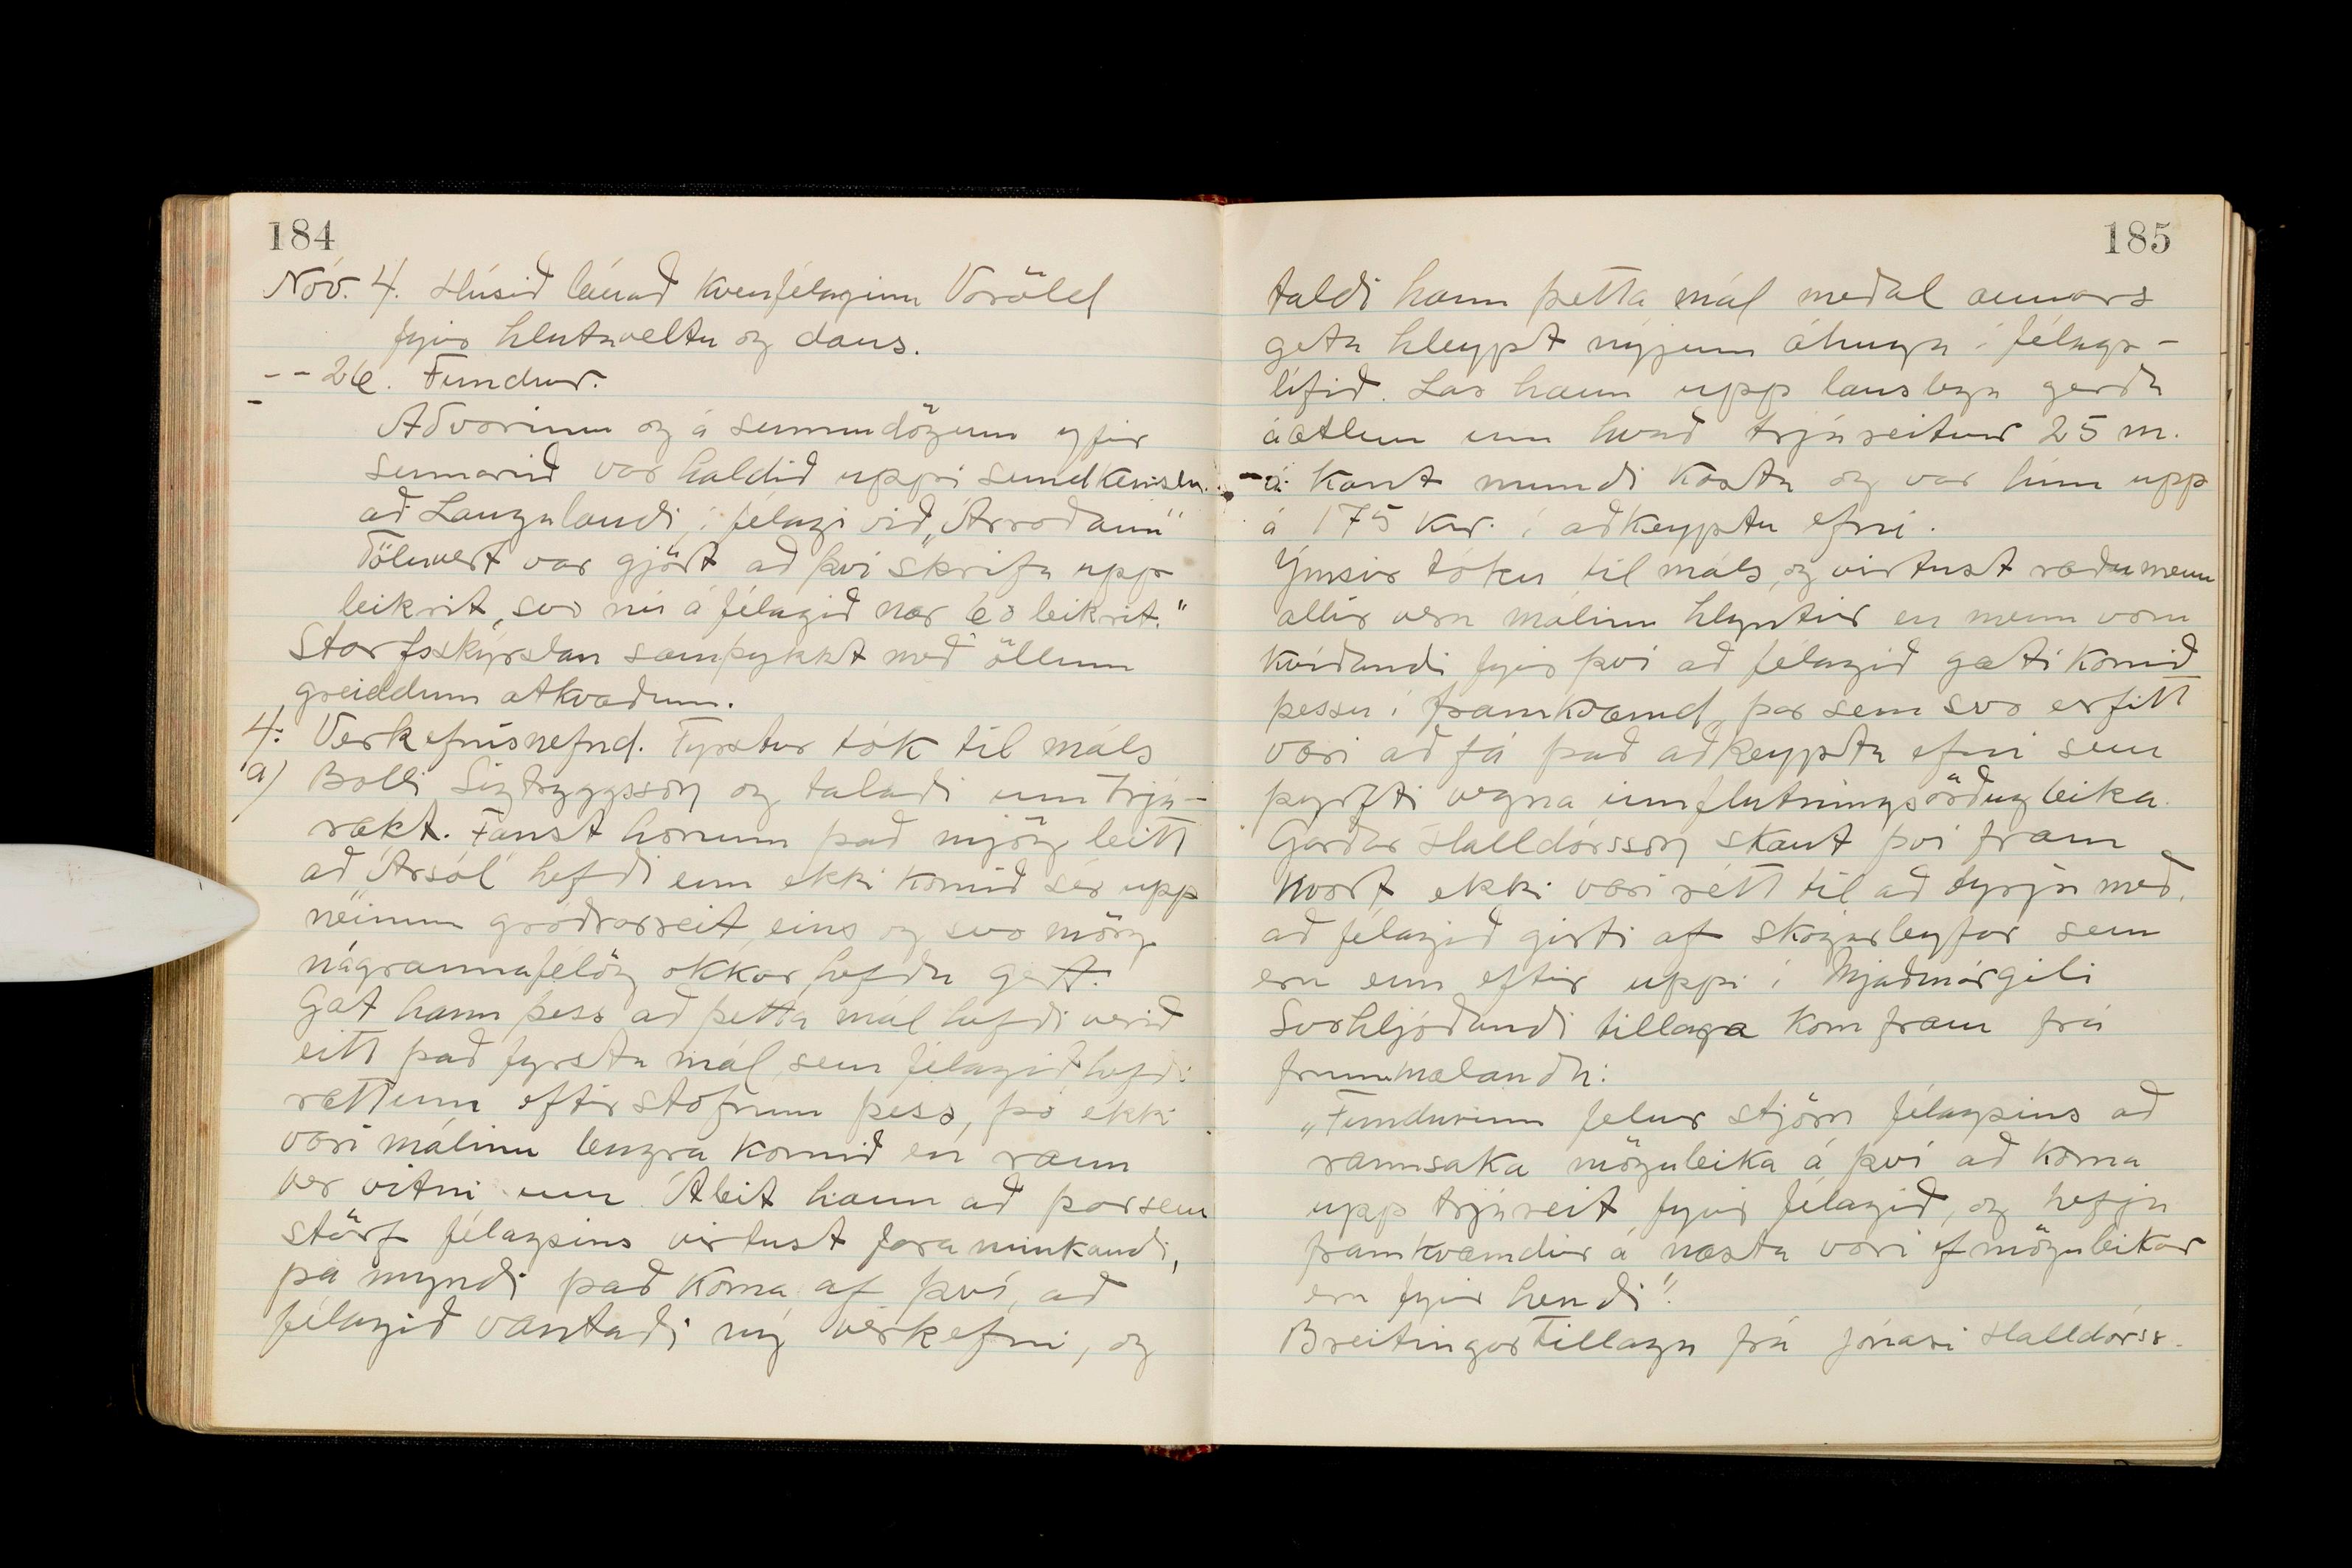 184
Nóv. 4. Húsið lánað kvenfélaginu Voröld
fyrir hlutaveltu og dans.
- - 26. Fundur.
Að vorinu og á sunnudögum yfir
sumarið var haldið uppi sundkenslu
að Laugalandi í félagi við „Árroðann"
Töluvert var gjört að því skrifa upp
leikrit, svo nú á félagið nær 60 leikrit."
Starfsskýrslan samþykkt með öllum
greiddum atkvæðum.
4: Verkefnisnefnd. Fyrstur tók til máls
a) Bolli Sigtryggsson og talaði um trjá-
rækt. Fanst honum það mjög leitt
að „Ársól" hefði enn ekki komið sér upp
neinum gróðrarreit, eins og svo mörg
nágrannafélög okkar hefðu gert.
Gat hann þess að þetta mál hefði verið
eitt það fyrsta mál, sem félagið hefði
rætt um eftir stofnun þess, þó ekki
væri málinu lengra komið en raun
ber vitni um. Áleit hann að þar sem
störf félagsins virtust fara minkandi,
þá myndi það koma af því, að
félagið vantaði ný verkefni, og
185
taldi hann þetta mál meðal annars
geta hleypt nýjum áhuga í félags-
lífið. Las hann upp lauslega gerða
áætlun um hvað trjáreitur 25 m.
á kant mundi kosta og var hún upp
á 175 kr. í aðkeyptu efni.
Ýmsir tóku til máls, og virtust ræðumenn
allir vera málinu hlyntir en menn voru
kvíðandi fyrir því að félagið gæti komið
þessu í framkvæmd, þar sem svo erfitt
væri að fá það aðkeypta efni sem
þyrfti vegna innflutningsörðugleika.
Garðar Halldórsson skaut því fram
hvort ekki væri rétt til að byrja með,
að félagið girti af skógarleyfar sem
eru enn eftir uppi í Mjaðmárgili
Svohljóðandi tillaga kom fram frá
frummælanda:
„Fundurinn felur stjórn félagsins að
rannsaka möguleika á því að koma
upp trjáreit fyrir félagið, og hefja
framkvæmdir á næsta vori ef möguleikar
eru fyrir hendi".
Breitingartillaga frá Jónasi Halldórss.